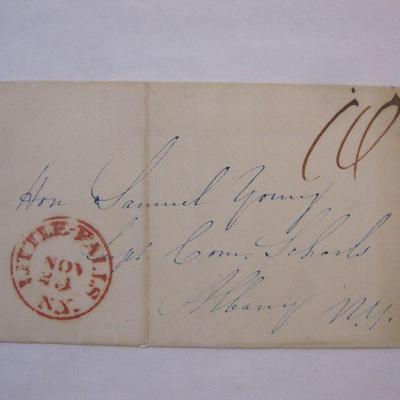 10
Hon Samuel Young
Supt Com. Schools
Albany N.Y.
LITTLE-FALLS
NOV
23
N.Y.